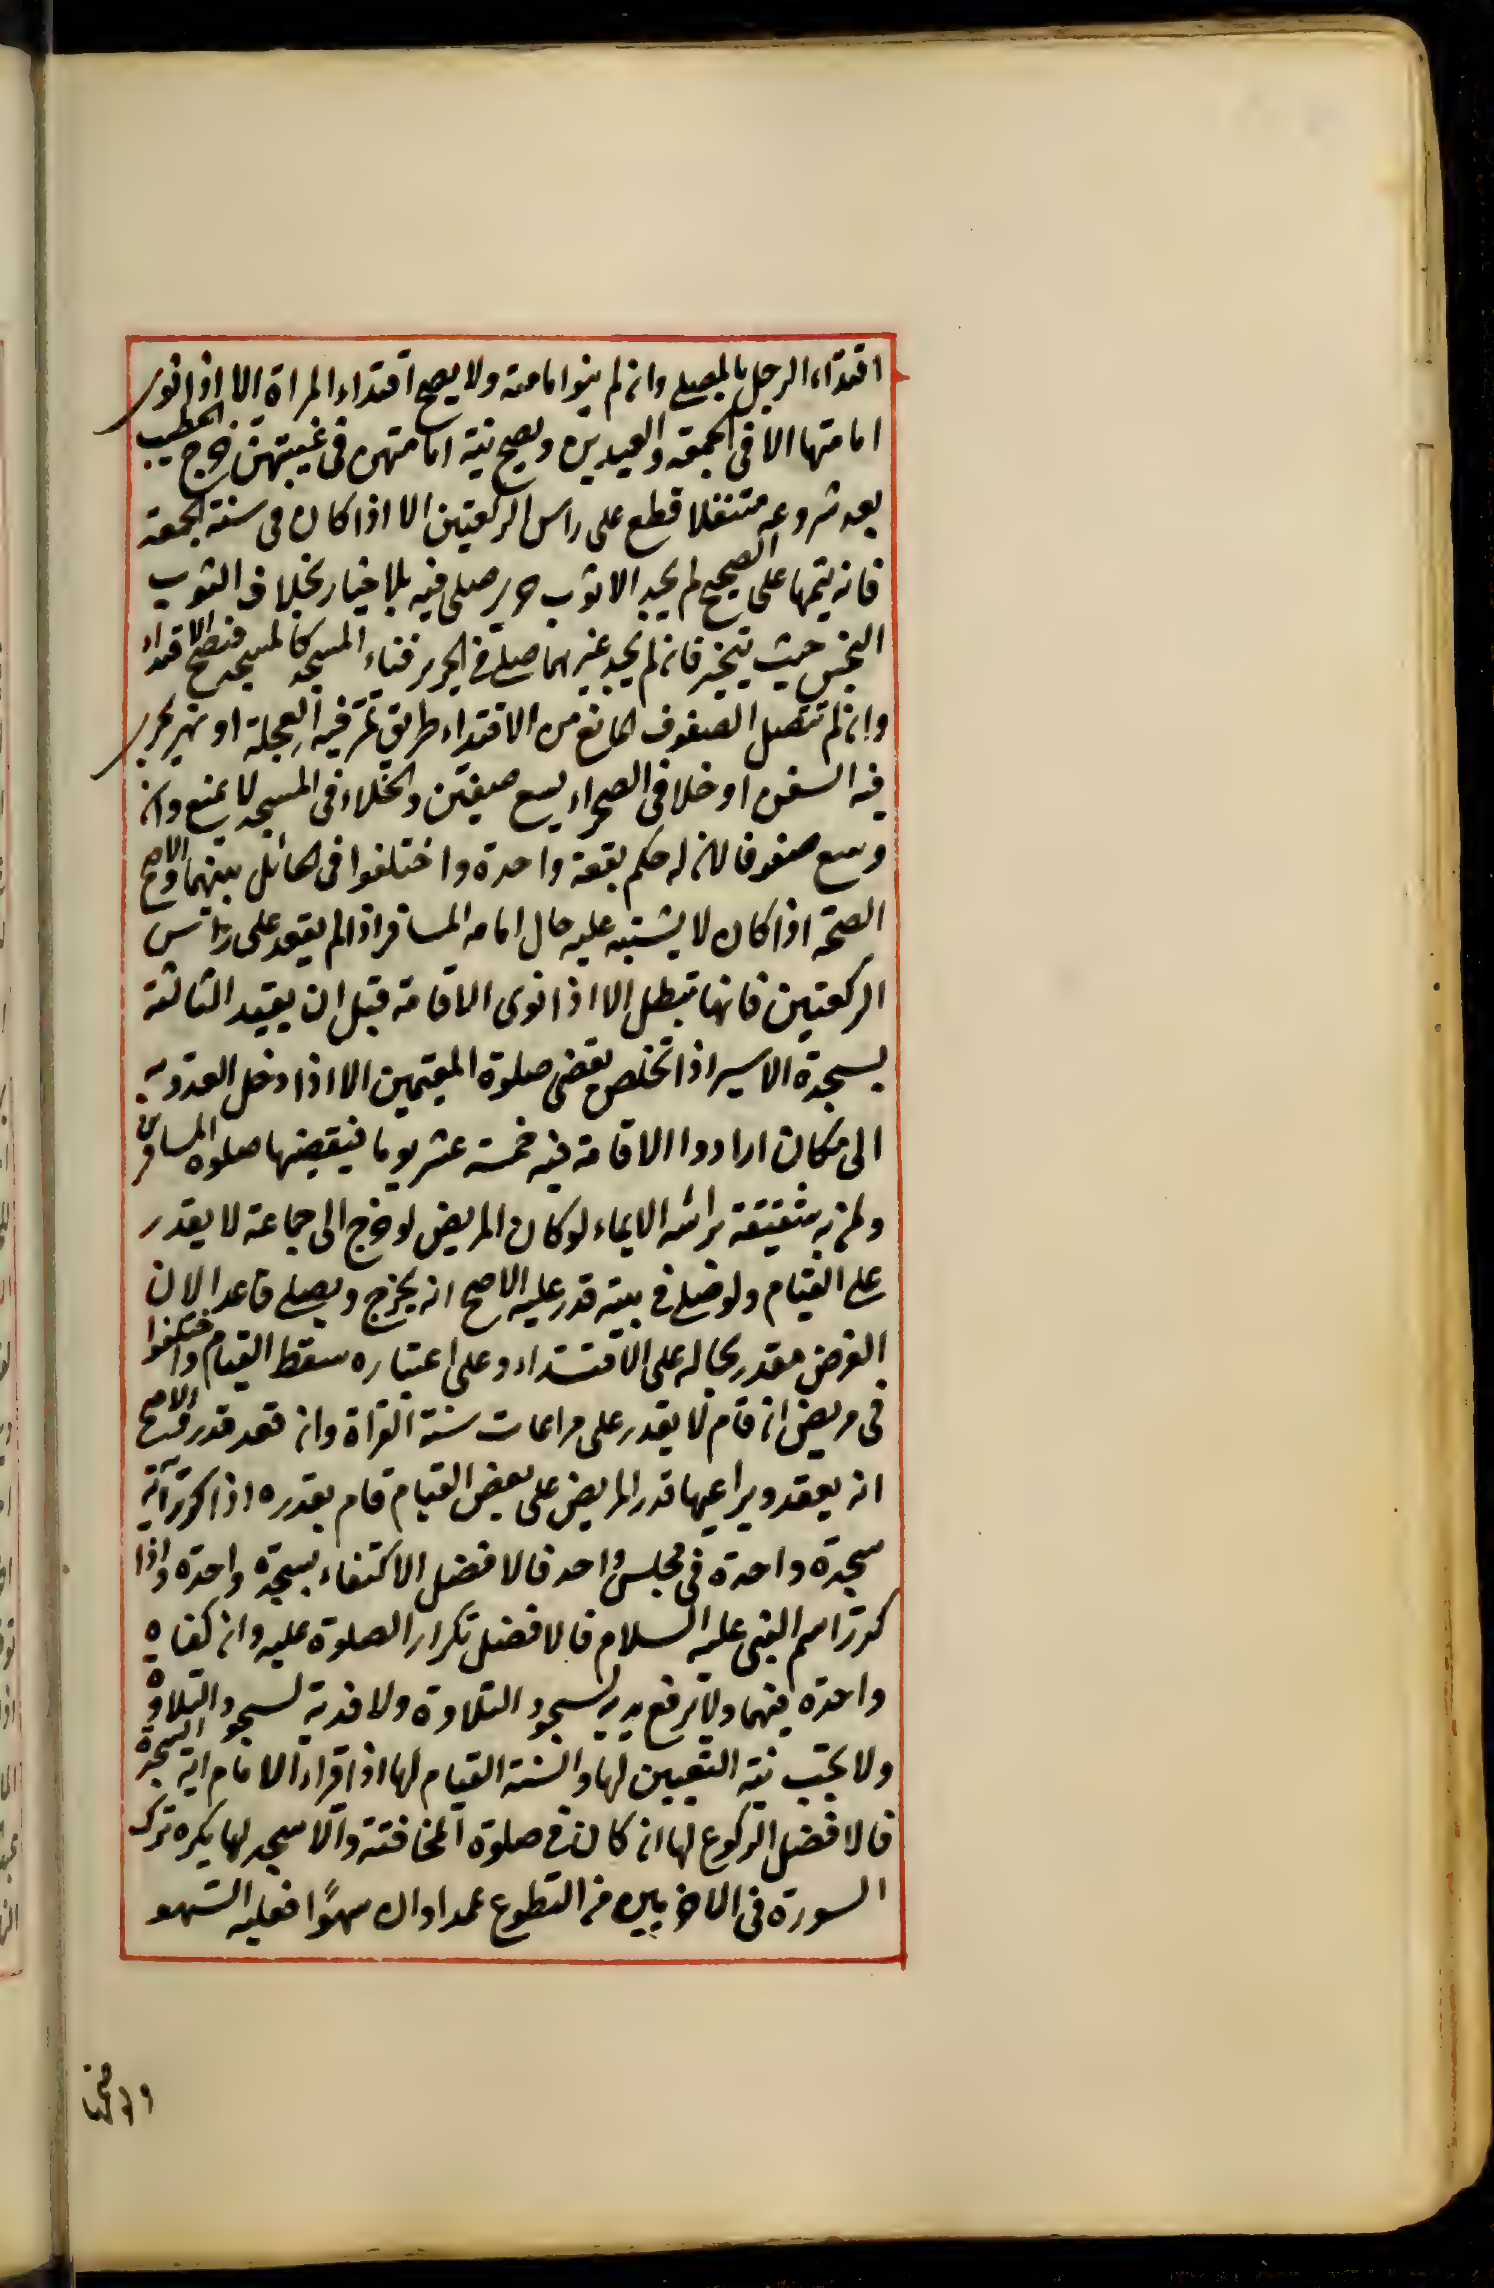 اقتداء الرجل بالمصلى وان لم ينو امامته ولا يصح اقتداء المراة الا اذا نوى
امامتها الا فى الجمعة والعيدين ويصح نية امامتهن فى غيبتهن خرج الخطيب
بعد شروعه متنفلا قطع على راس الركعتين الا اذا كان فى سنة الجمعة
فانه يتمها على الصحيح لم يجد الا ثوب حرير صلى فيه بلا خيار بخلاف الثوب
النجس حيث يتخير فان لم يجد غيرهما صلى فى الحرير فناء المسجد كالمسجد فتصح الاقتداء
وان لم تتصل الصفوف المانع من الاقتداء طريق تمر فيه العجلة او نهر يجرى
فيه السفن او خلا فى الصحراء يسع صفين والخلاء فى المسجد لا يمنع وان
وسع صفوفا لان له حكم بقعة واحدة واختلفوا فى الحائل بينهما والاصح
الصحة اذا كان لا يشتبه عليه حال امامه المسافر اذا لم يقعد على راس
الركعتين فانها تبطل الا اذا نوى الاقامة قبل ان يقيد الثالثة
بسجدة الاسير اذا تخلص يقضى صلوة المقيمين الا اذا دخل العدو به
الى مكان ارادوا الاقامة فيه خمسة عشر يوما فيقضيها صلوة المسافرين
ولمن به شقيقة براسه الايماء لو كان المريض لو خرج الى جماعة لا يقدر
على القيام ولو صلى فى بيته قدر عليه الاصح انه يخرج ويصلى قاعدا لان
الفرض مقدر بحاله على الاقتداء وعلى اعتباره سقط القيام واختلفوا
فى مريض ان قام لا يقدر على مراعات سنة القراة وان قعد قدر فالاصح
انه يقعد ويراعيها قدر المريض على بعض القيام قام بقدره اذا كرر آية
سجدة واحدة فى مجلس واحد فالافضل الاكتفاء بسجدة واحدة واذا
كرر اسم النبى عليه السلام فالافضل تكرار الصلوة عليه وان كفاه
واحدة فيهما ولا يرفع يديه لسجود التلاوة ولا فدية لسجود التلاوة
ولا يجب نية التعيين لها والسنة القيام لها اذا قراء الامام اية السجدة
فالافضل الركوع لها ان كان فى صلوة المخافتة والا سجد لها يكره ترك
السورة فى الاخريين من التطوع عمدا وان سهوًا فعليه السهو